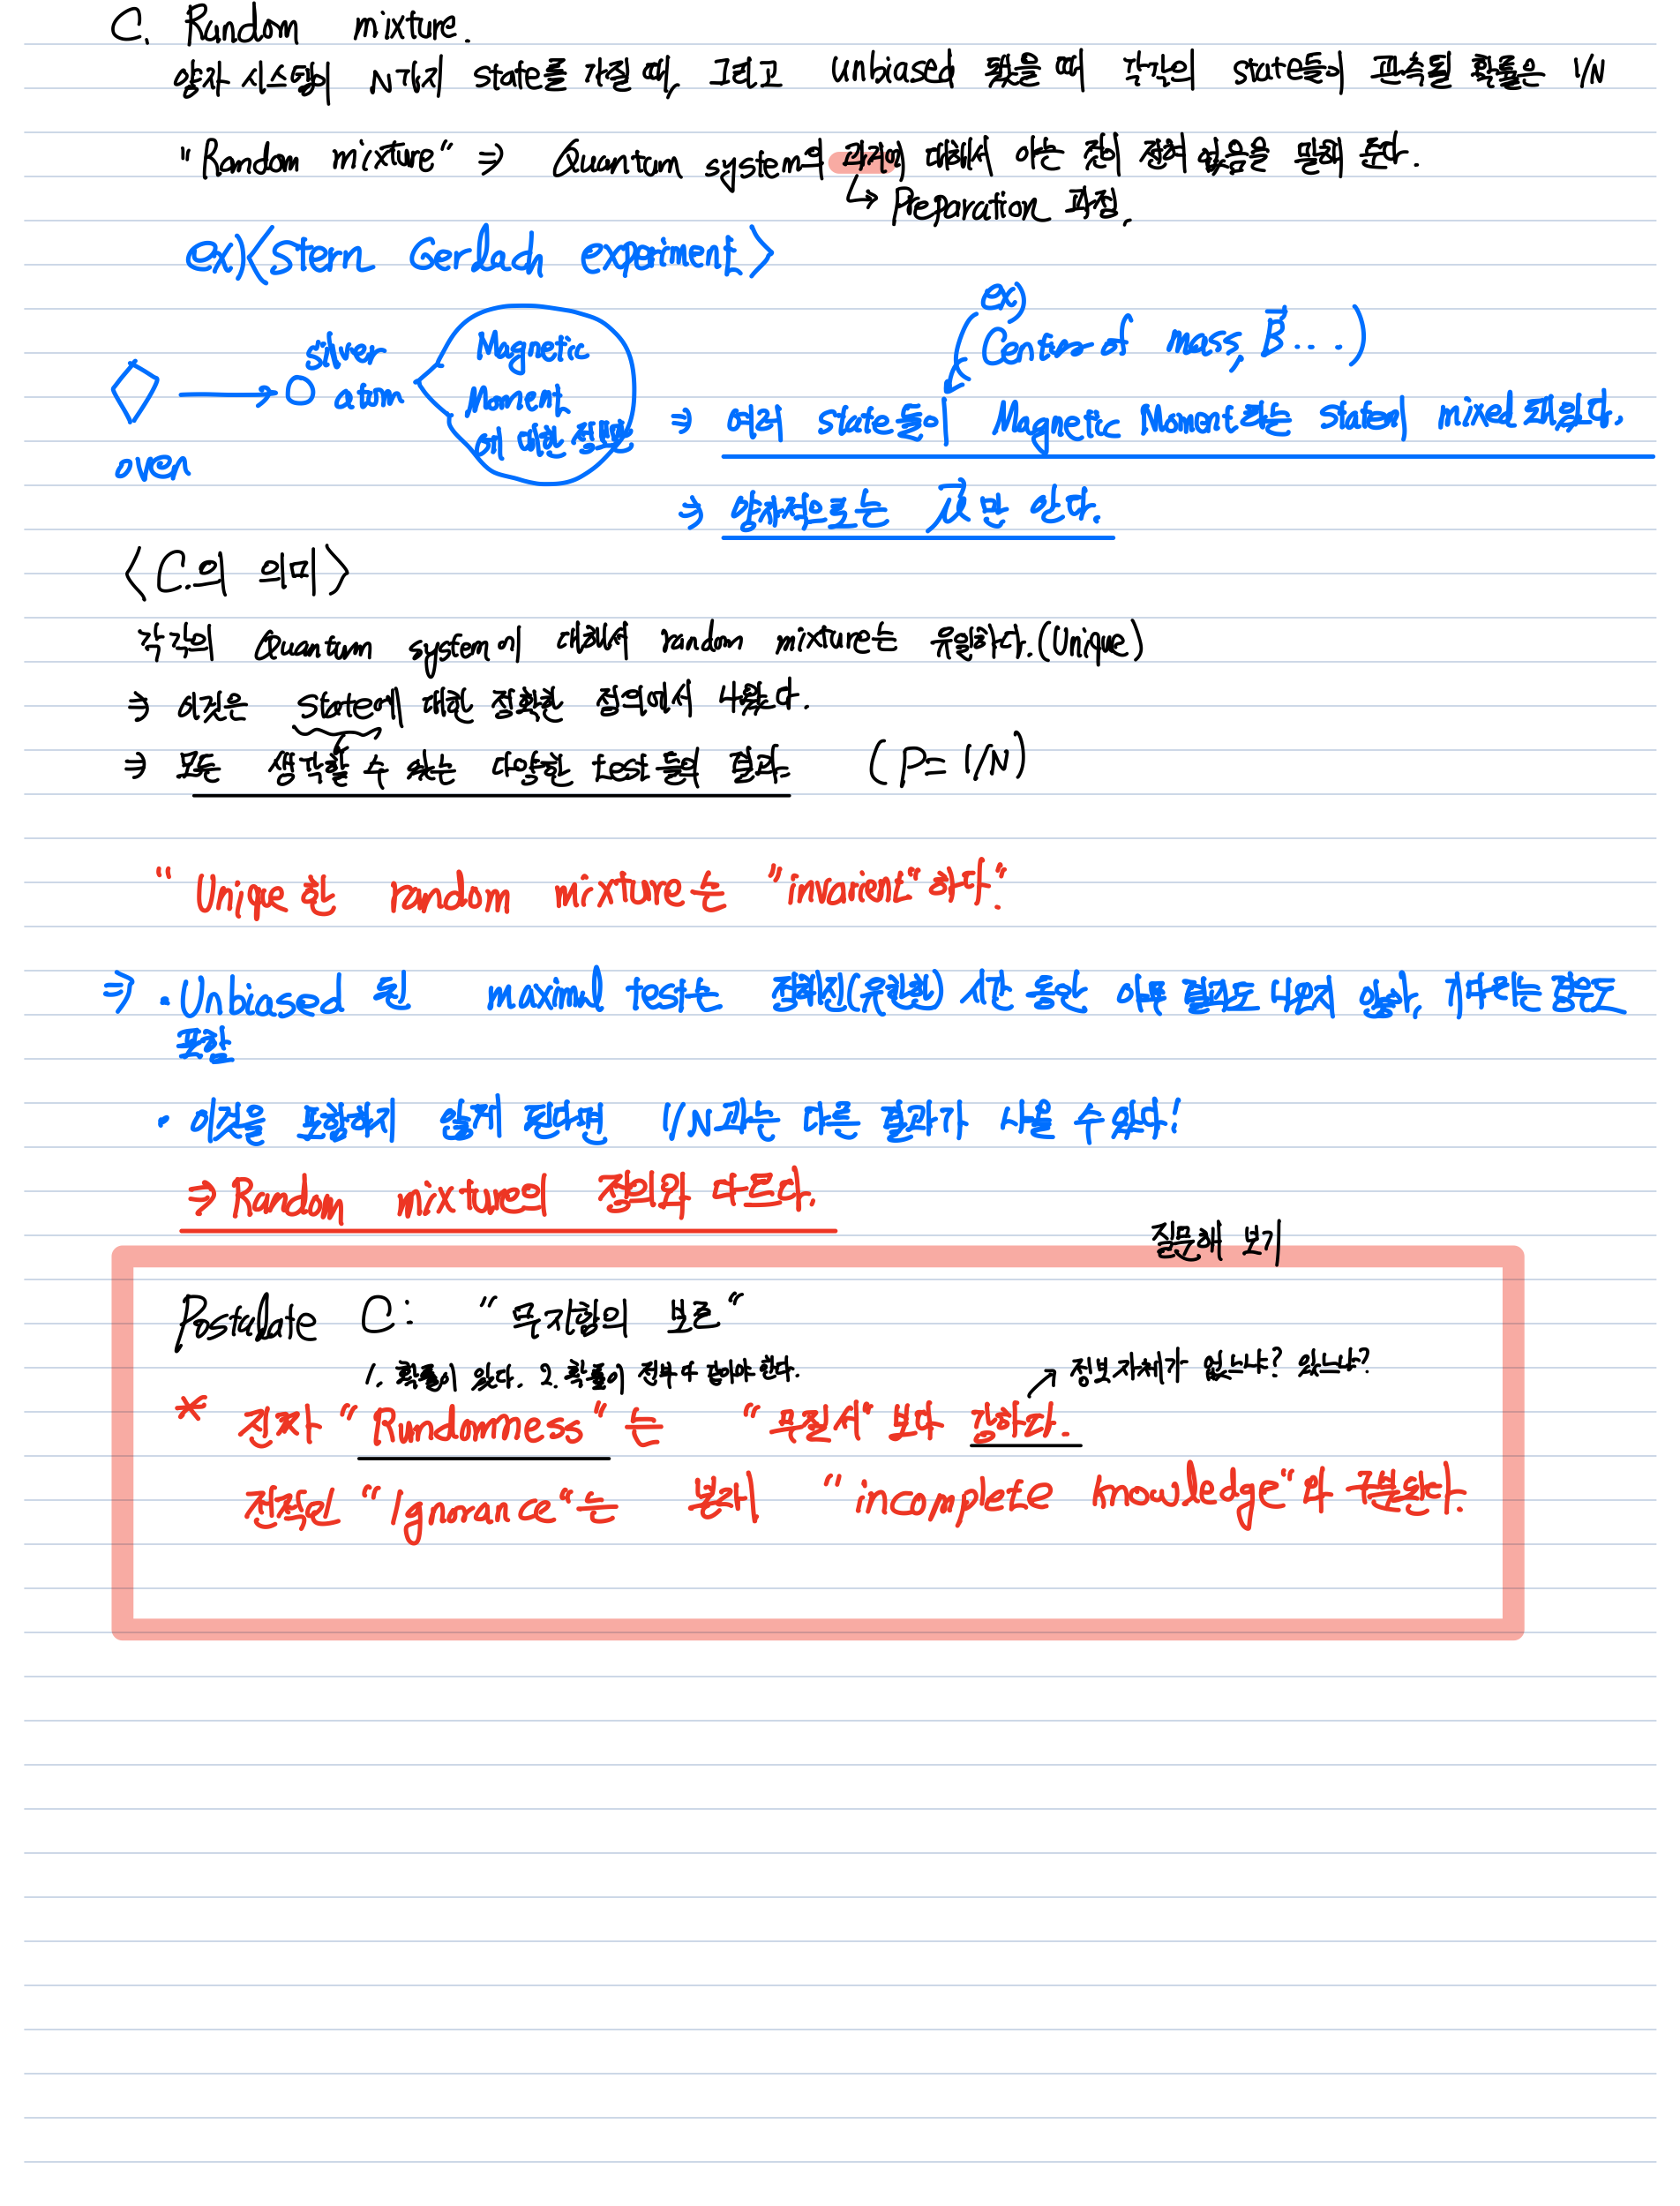 C. Random mixture.
양자 시스템이 N가지 state를 가질 때, 그리고 unbiased 됐을 때 각각의 state들이 관측될 확률은 1/N
"Random mixture" ⇒ Quantum system의 과거에 대해서 아는 것이 전혀 없음을 말해 준다.
↳ Preparation 과정.
ex) <Stern Gerlach experiment>
ex)
(Center of mass, B⃗ ...)
oven
silver atom
Magnetic
Moment
에 대한 정보만
⇒ 여러 state들이 Magnetic Moment라는 state에 mixed 돼있다.
⇒ 양자적으로는 μ⃗만 안다.
<C.의 의미>
각각의 Quantum system에 대해서 random mixture는 유일하다.(Unique)
⇒ 이것은 state에 대한 정확한 정의에서 나왔다.
⇒ 모든 생각할 수 있는 다양한 test들의 결과 (P= 1/N)
"Unique한 random mixture는 "invarient"하다."
⇒ · Unbiased 된 maximal test는 정해진(유한한) 시간 동안 아무 결과도 나오지 않아, 기다리는 경우도
포함
· 이것을 포함하지 않게 된다면 1/N과는 다른 결과가 나올 수 있다!
⇒ Random mixture의 정의와 다르다.
질문해 보기
Postulate C: "무지함의 보존"
1. 확률이 있다. 2. 확률이 전부 다 같아야 한다.
↗ 정보 자체가 없느냐? 있느냐?
* 진짜 "Rundomness"는 "무질서"보다 강하다.
전적인 "Ignorance"는 "incomplete knowledge"와 구분된다.